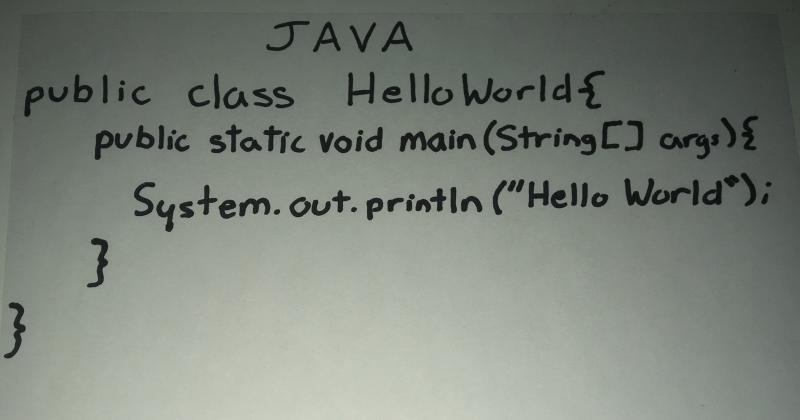 JAVA
public class HelloWorld{
public static void main(String[] args){
System.out.println("Hello World");
}
}